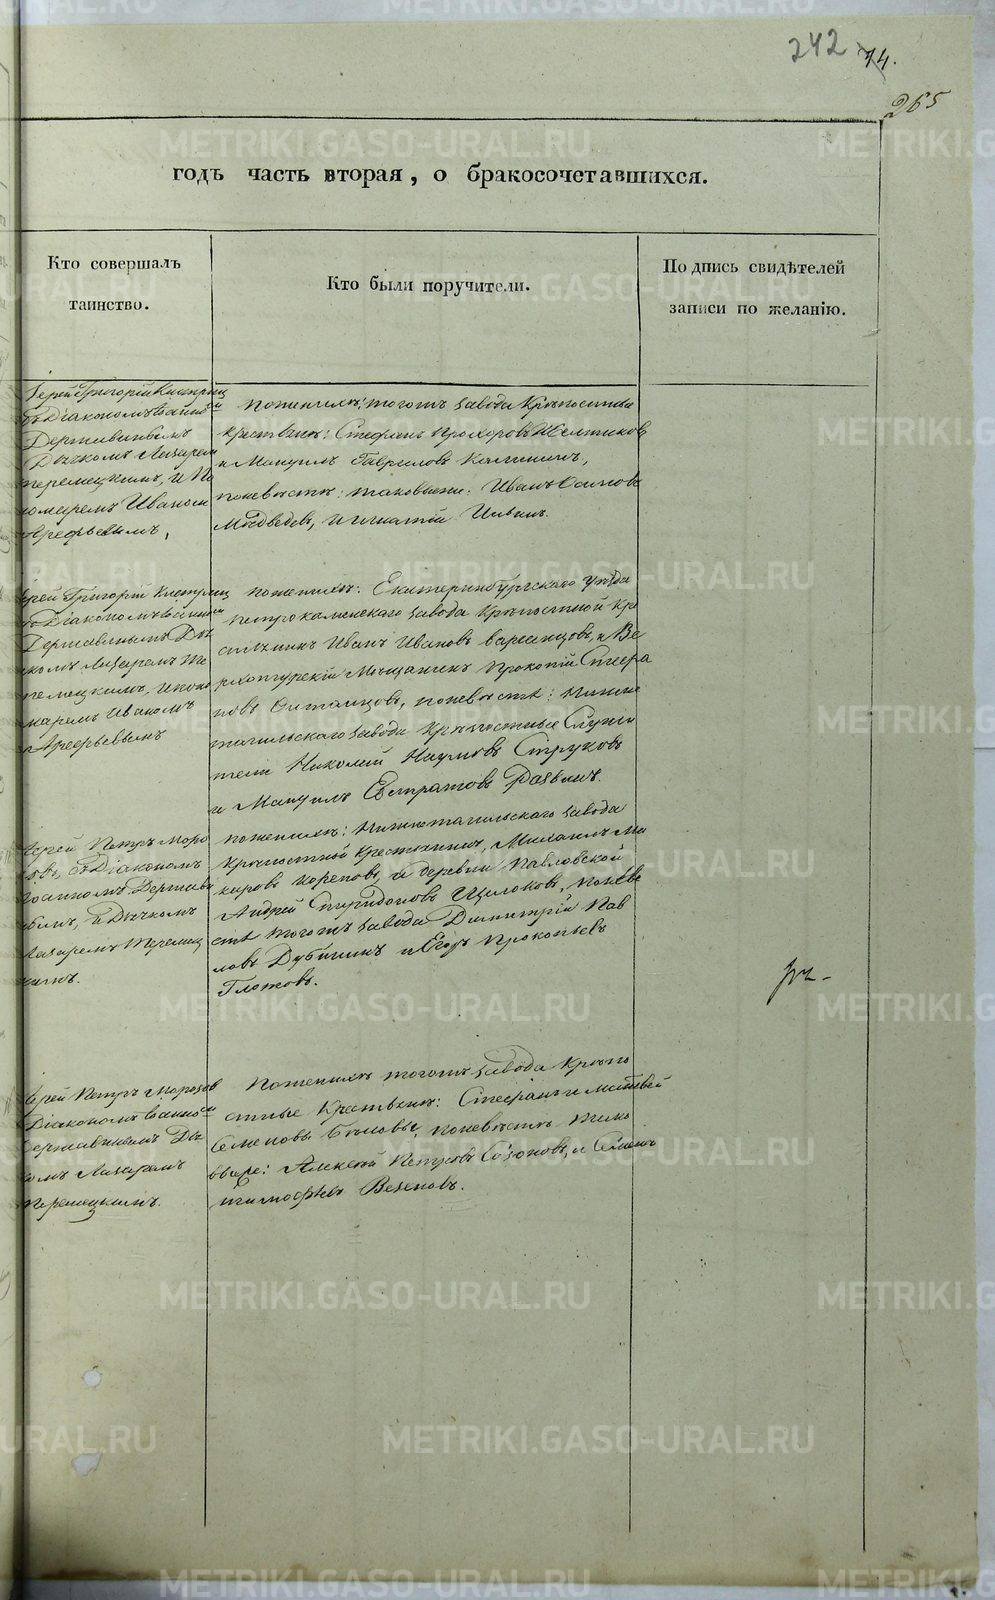 242 14.
265
годъ часть вторая, о бракосочетавшихся.
Кто совершалъ
таинство.
Кто были поручители.
Подпись свидѣтелей
записи по желанію.
Іерей Григорій
съ Діакономъ Іоанномъ
Державинымъ
Дьчкомъ Лазаремъ
Теремецкимъ, и По
номаремъ Иваномъ
Арефьевымъ,
Поженихѣ: тогожъ завода Крѣпостныи
Крестьяне: Стефанъ Прохоровъ Желтиковъ
и Мануилъ Гавриловъ Калининъ,
поневѣстѣ: таковыеже: Иванъ Осиповъ
Медведевъ, и Игнатій Ильинъ.
Іерей Григорій
съ Діакономъ Іоанномъ
Державинымъ Дь
чкомъ Лазаремъ Те
ремецкимъ, и поно
маремъ Иваномъ
Арефьевымъ
поженихѣ: Екатеринбургскаго уѣзда
петрокаменскаго завода Крѣпостной Кре
стьянинъ Иванъ Ивановъ и Ве
рхотурскій Мѣщанинъ Прокопій Стефа
новъ поневѣстѣ: Нижне
тагильскаго завода Крѣпостные Служи
тели Николай Наумовъ Струковъ
и Мануилъ Евстратовъ
Іерей Петръ Моро
зовъ, съ Діакономъ
Іоанномъ Держави
нымъ, и Дьчкомъ
Лазаремъ Теремец
кимъ.
поженихѣ: Нижнетагильскаго завода
Крѣпостной Крестьянинъ, Михаилъ Ма
каровъ и деревни Павловской
Андрей Спиридоновъ Щелоковъ, поневе
стѣ тогожъ завода Димитрій Пав
ловъ и Егоръ Прокопьевъ
Глотовъ.
Іерей Петръ Морозовъ
Діакономъ Іоанномъ
Державинымъ Дь
комъ Лазаремъ
Теремецкимъ.
Поженихѣ тогожъ завода Крѣпо
стные Крестьяне: Стефанъ и Матвѣй
Семеновы Бѣловы, поневѣстѣ тако
выеже: Алексѣй Петровъ Созоновъ, и Семенъ
тимофѣевъ
METRIKI.GASO-URAL.RU